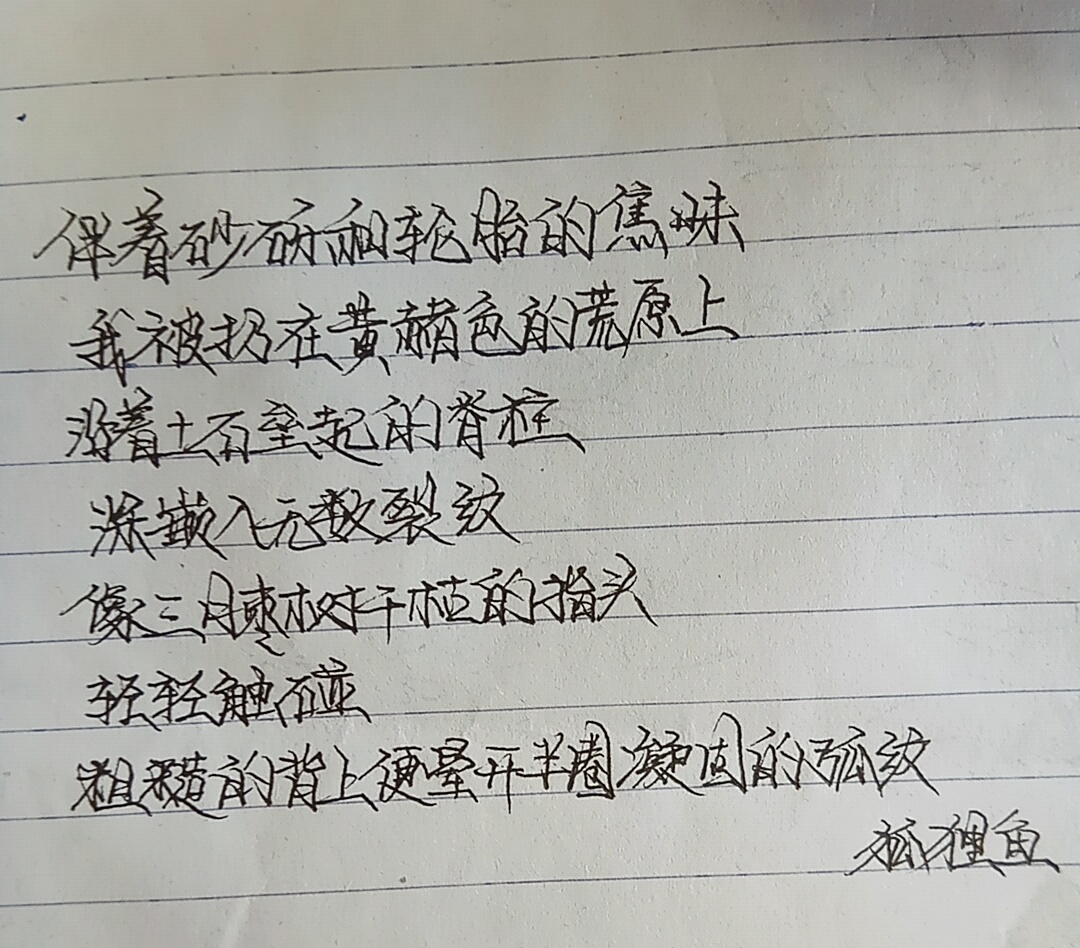 伴着砂砾和轮胎的焦味
我被扔在黄赭色的荒原上
沿着土石垒起的脊柱
深嵌入无数裂纹
像三月枣树干枯的指头
轻轻触碰
粗糙的背上便晕开半圈凝固的弧纹
狐狸鱼